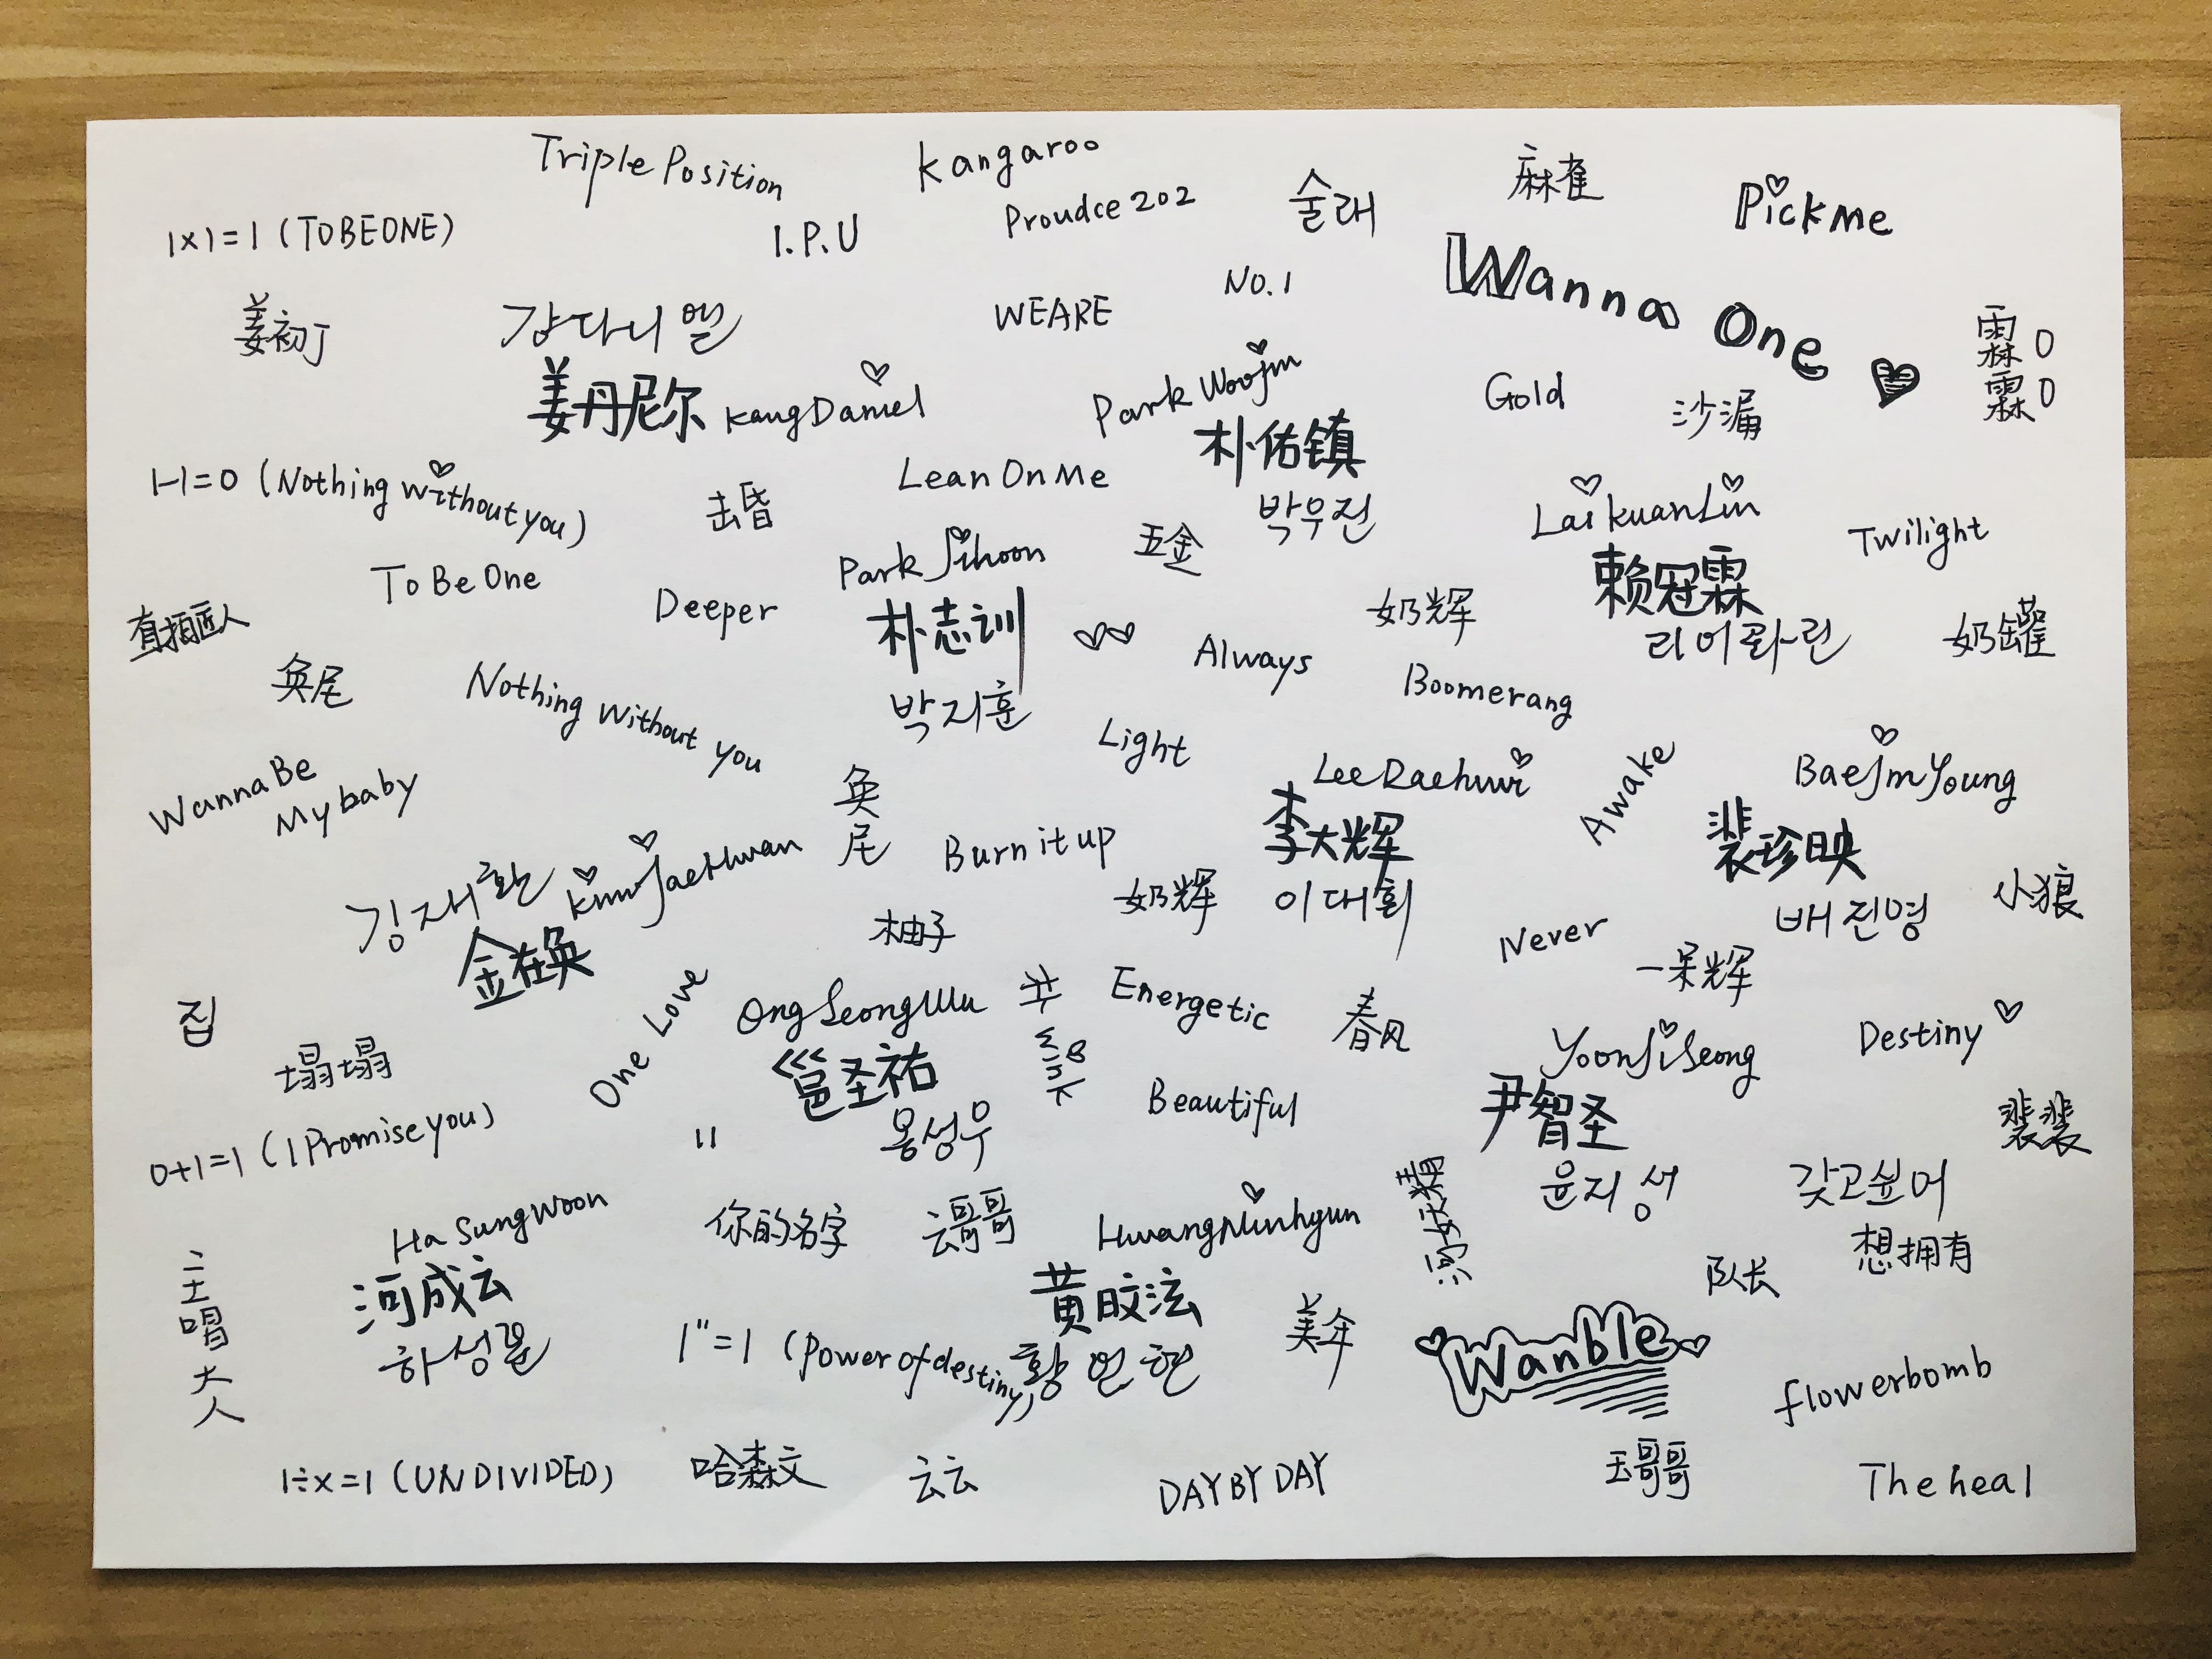 Triple Position
Kangaroo
麻雀
Pick Me
1×1=1 (TOBEONE)
I.P.U
Proudce 202
술래
Wanna One
No.1
WEARE
姜初丁
강다니엘
霖0
霖0
姜丹尼尔 Kang Daniel
Park Woojin
朴佑镇
박우진
Gold
沙漏
1-1=0 (Nothing without you)
Lean On Me
Lai kuan Lin
赖冠霖
리어콰린
Twilight
五金
To Be One
Deeper
Park Jihoon
朴志训
박지훈
奶辉
奶罐
直拍匠人
奂尾
Nothing Without you
Always
Boomerang
Light
Wanna Be
My baby
奂
尾
Lee Daehwi
李大辉
이대휘
Awake
Bae Jin Young
裴珍映
배진영
小狼
김재환 Kim Jae Hwan
金在奂
Burn it up
奶辉
柚子
Never
一呆辉
집
塌塌
One Love
Ong Seong Wu
邕圣祐
옹성우
Energetic
春风
Yoon Ji Seong
尹智圣
윤지성
Destiny
裴裴
0+1=1 (I Promise you)
Beautiful
갖고싶어
想拥有
Ha Sung Woon
河成云
하성운
你的名字
云哥哥
Hwang Minhyun
黄旼泫
황민현
河妖精
队长
主唱大人
1''=1 (Power of destiny)
美年
Wanble
flowerbomb
1÷x=1 (UNDIVIDED)
哈森文
云云
DAY BY DAY
玉哥哥
The heal